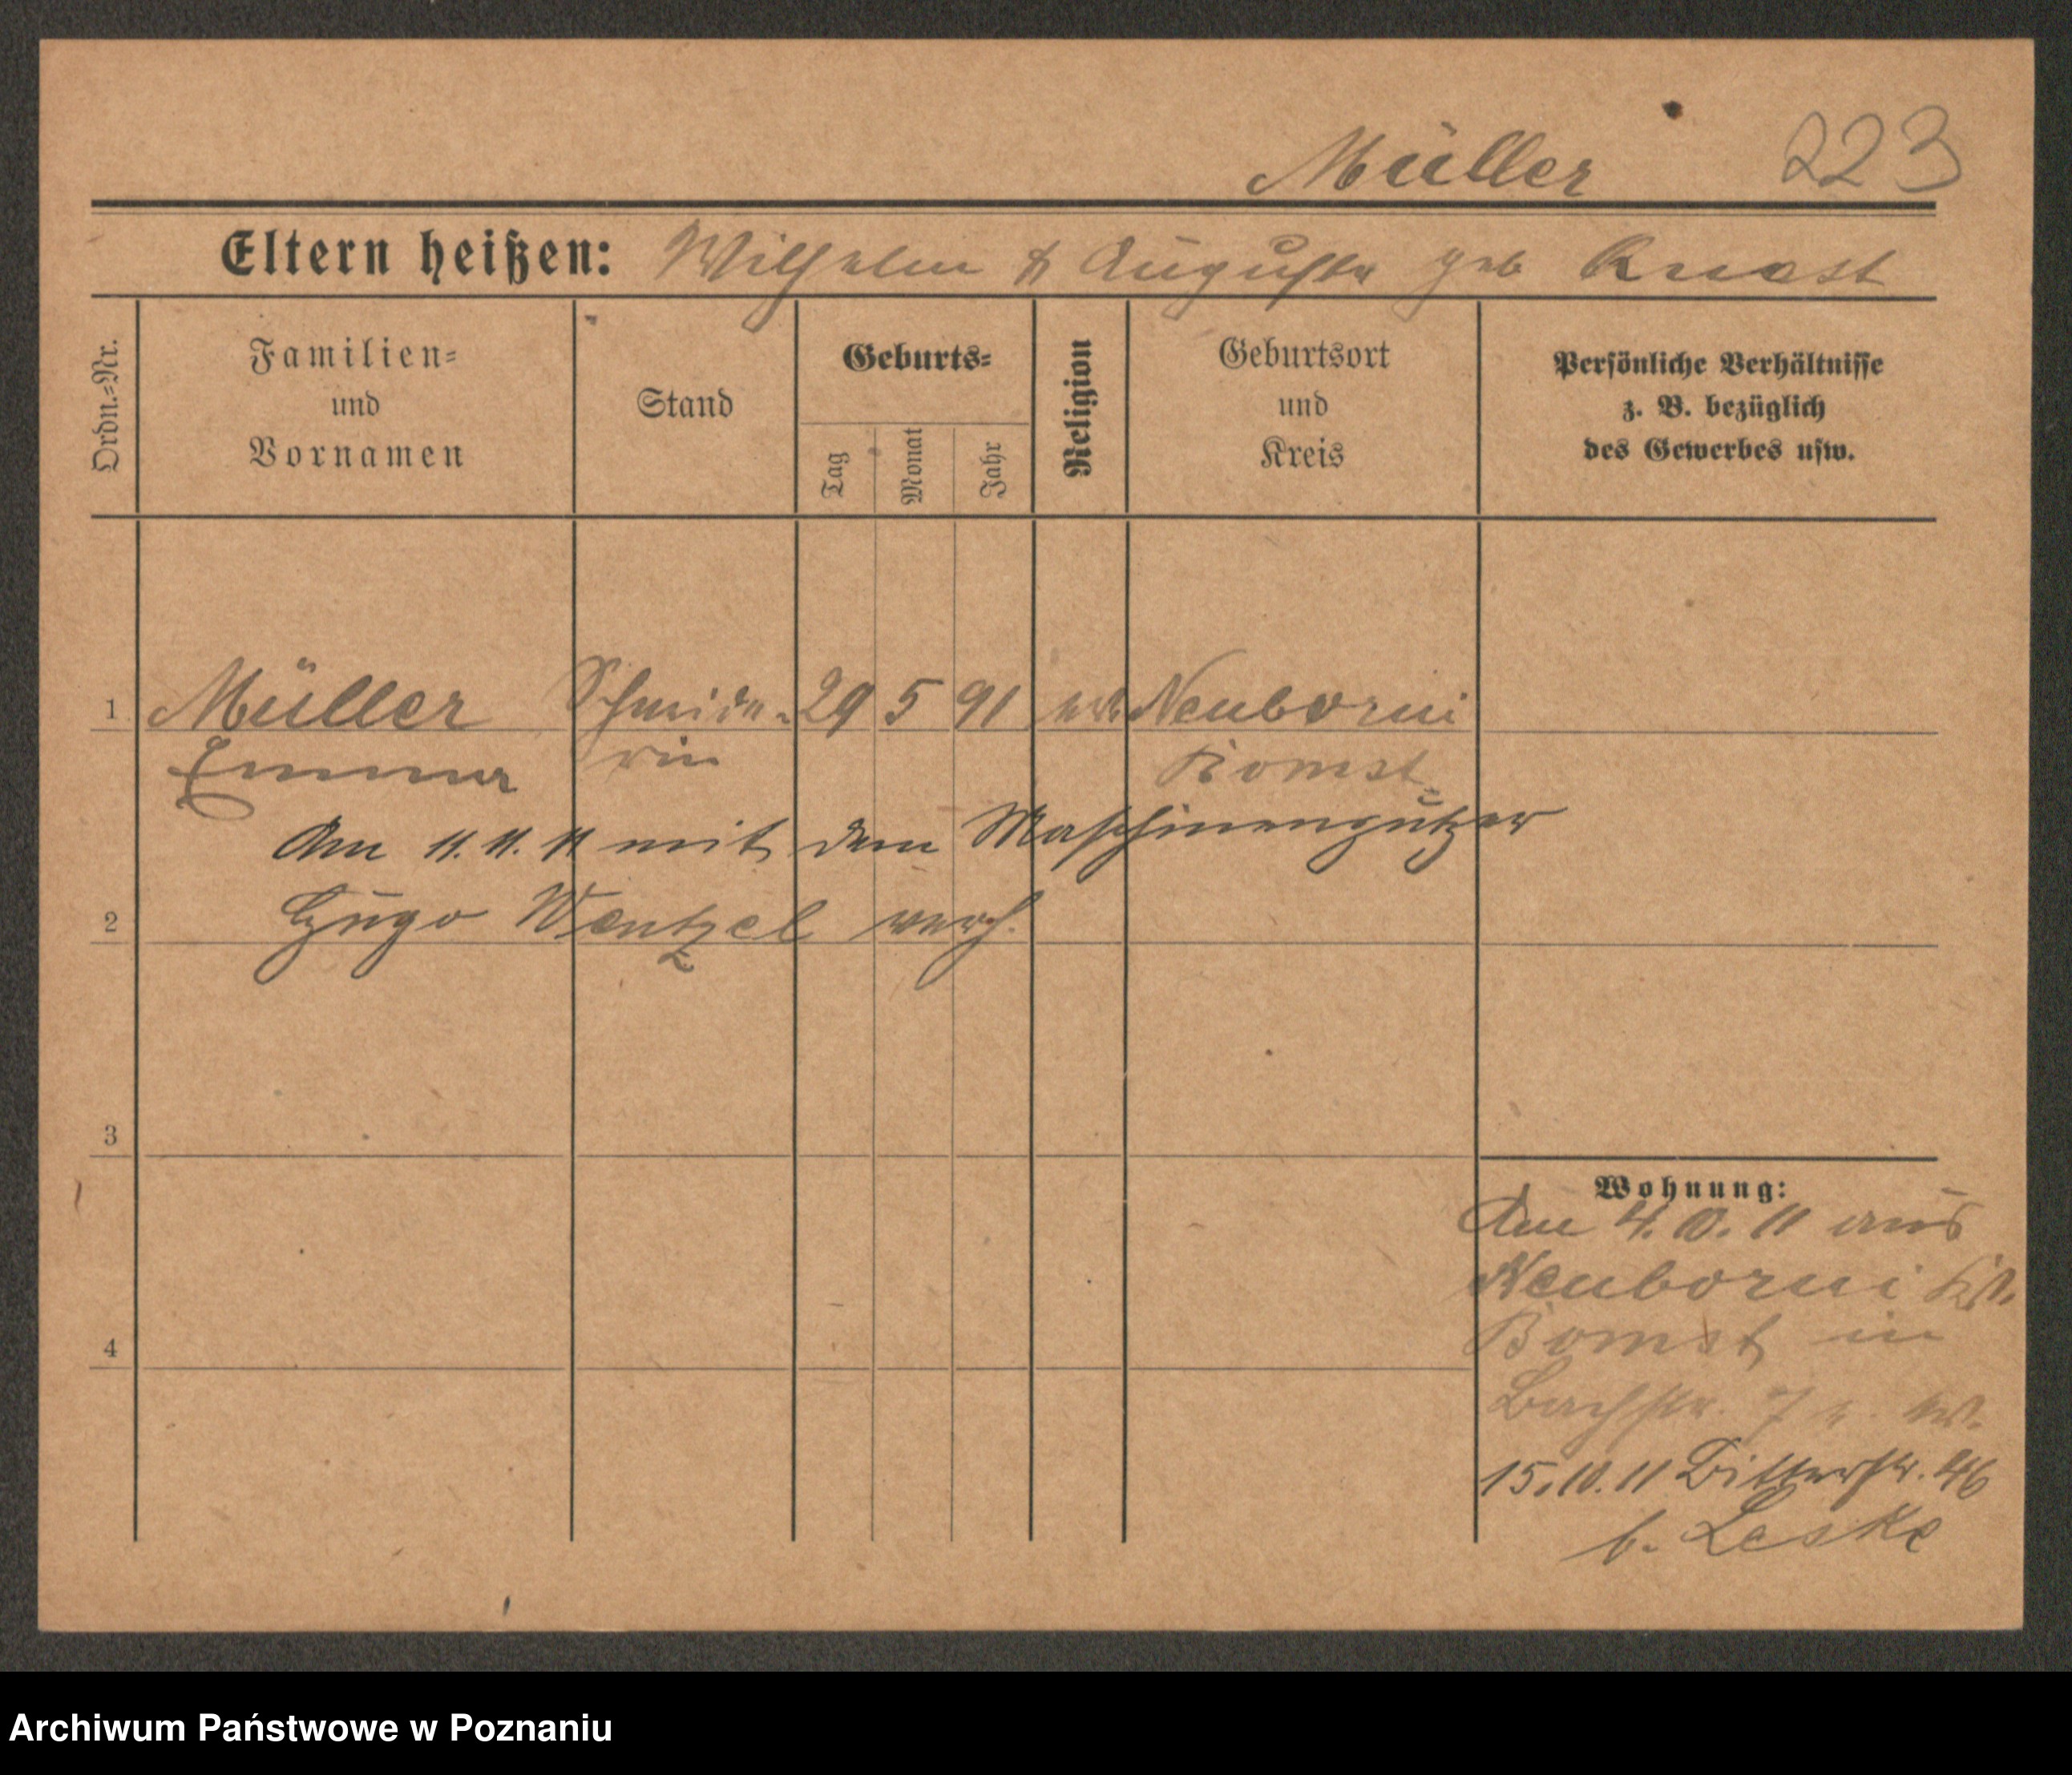 Müller 223
Eltern heißen: Wilhelm & Auguste geb Knast
Ordn.-Nr.
Familien-
und
Vornamen
Stand
Geburts-
Tag
Monat
Jahr
Religion
Geburtsort
und
Kreis
Persönliche Verhältnisse
z. B. bezüglich
des Gewerbes usw.
1 Müller Schneide- 29 5 91 Neuborui
Emma rin Bomst
Am 11. 11. 11 mit dem Maschinenputzer
2 Hugo Wentzel verh.
3
Wohnung:
Am 4. 10. 11 aus
Neuborui Kr.
4
Bomst in
Bachstr. 7
15.10.11 Bitterstr. 46
b. Leske
Archiwum Państwowe w Poznaniu